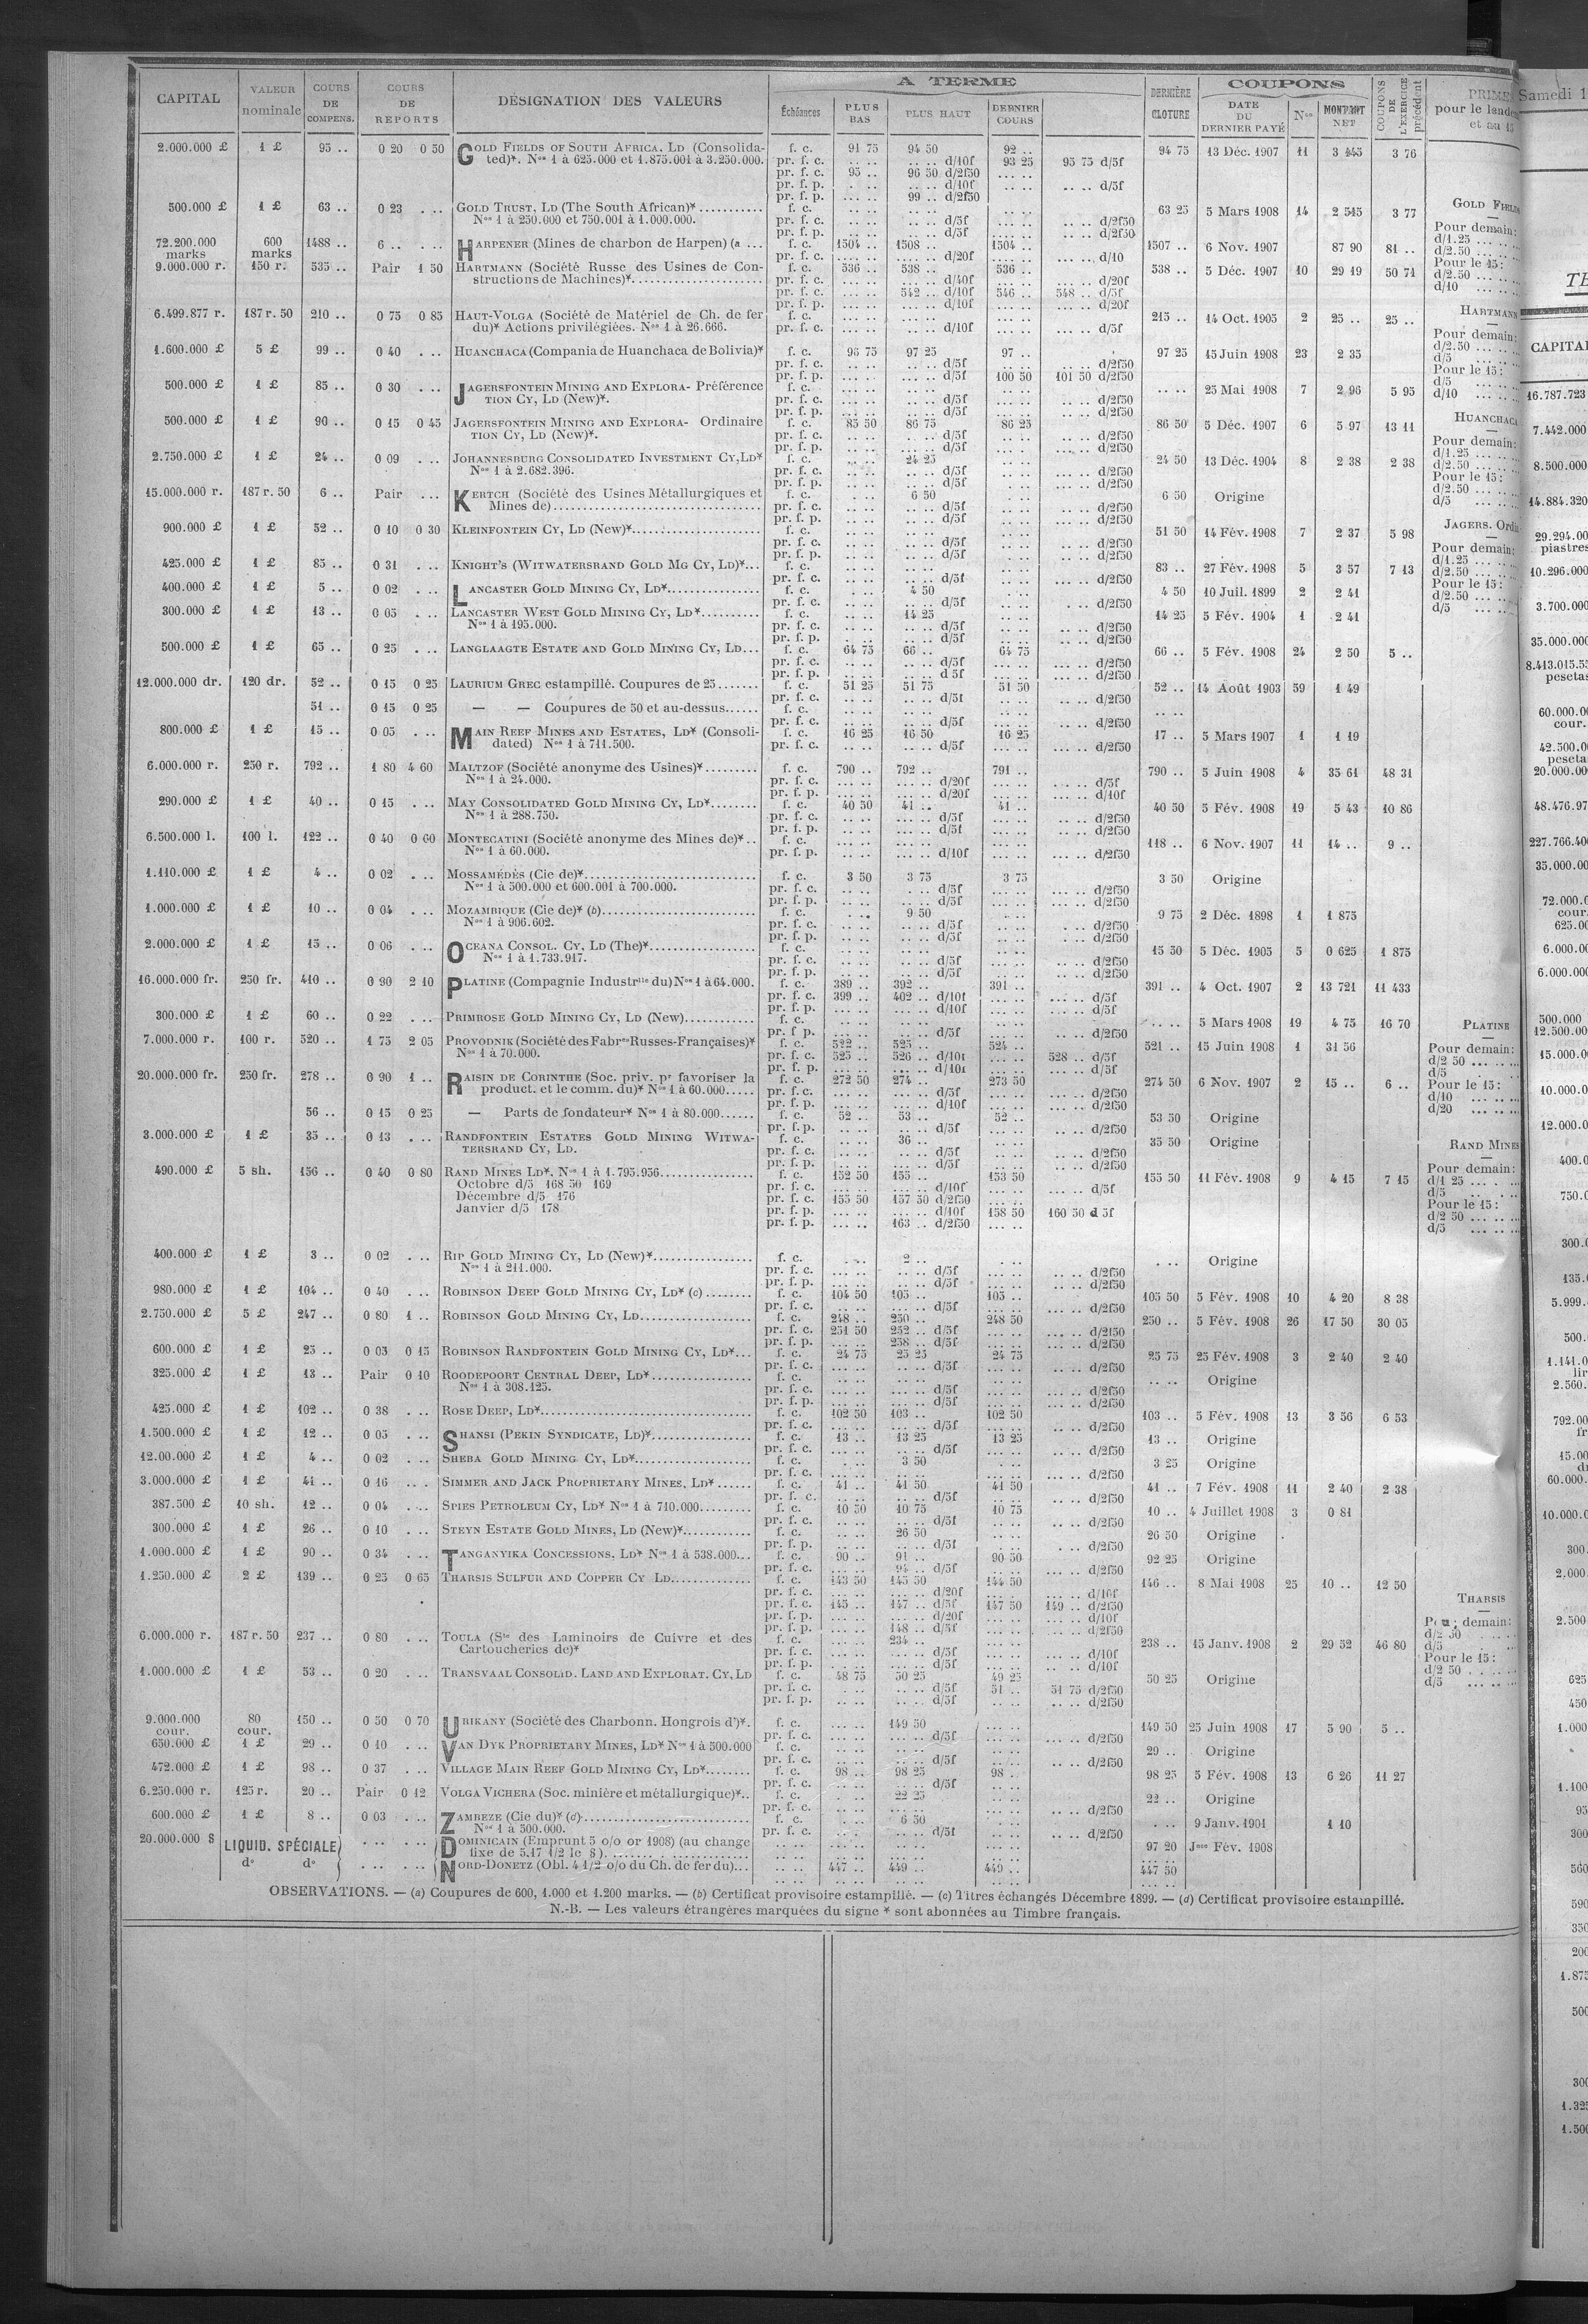 CAPITAL VALEUR nominale COURS DE COMPENS. COURS DE REPORTS DÉSIGNATION DES VALEURS A TERME Échéances PLUS BAS PLUS HAUT DERNIER COURS DERNIÈRE CLOTURE COUPONS DATE DU DERNIER PAYÉ Nos MONTANT NET COUPONS DE L'EXERCICE précédent
2.000.000 £ 1 £ 95 .. 0 20 0 50 GOLD FIELDS OF SOUTH AFRICA, LD (Consolida- f. c. 91 75 94 50 92 .. 94 75 13 Déc. 1907 11 3 445 3 76
ted)*. Nos 1 à 625.000 et 1.875.001 à 3.250.000. pr. f. c. .. .. .. .. d/10f 93 25 95 75 d/5f
pr. f. c. 95 .. 96 50 d/2f50
pr. f. p. .. .. d/10f .. .. d/5f
pr. f. p. 99 .. d/2f50
500.000 £ 1 £ 63 .. 0 23 . .. GOLD TRUST, LD (The South African)* f. c. 63 25 5 Mars 1908 14 2 545 3 77
Nos 1 à 250.000 et 750.001 à 1.000.000. pr. f. c. d/5f d/2f50
pr. f. p. d/5f d/2f50
72.200.000 marks 600 marks 1488 .. 6 .. . .. HARPENER (Mines de charbon de Harpen) (a ... f. c. 1504 .. 1508 .. 1504 .. 1507 .. 6 Nov. 1907 87 90 81 ..
pr. f. c. d/20f d/10
9.000.000 r. 150 r. 535 .. Pair 1 50 HARTMANN (Société Russe des Usines de Con- f. c. 536 .. 538 .. 536 .. 538 .. 5 Déc. 1907 10 29 19 50 71
structions de Machines)* pr. f. c. d/40f d/20f
pr. f. c. 542 .. d/10f 546 .. 548 .. d/5f
pr. f. p. d/10f d/20f
6.499.877 r. 187 r. 50 210 .. 0 75 0 85 HAUT-VOLGA (Société de Matériel de Ch. de fer f. c. 215 .. 14 Oct. 1905 2 25 .. 25 ..
du)* Actions privilégiées. Nos 1 à 26.666. pr. f. c. d/10f d/5f
1.600.000 £ 5 £ 99 .. 0 40 . .. HUANCHACA (Compania de Huanchaca de Bolivia)* f. c. 96 75 97 25 97 .. 97 25 15 Juin 1908 23 2 35
pr. f. c. d/5f d/2f50
pr. f. p. d/5f 100 50 101 50 d/2f50
500.000 £ 1 £ 85 .. 0 30 . .. JAGERSFONTEIN MINING AND EXPLORA- Préférence f. c. 25 Mai 1908 7 2 96 5 95
TION CY, LD (New)*. pr. f. c. d/5f d/2f50
pr. f. p. d/5f d/2f50
500.000 £ 1 £ 90 .. 0 15 0 45 JAGERSFONTEIN MINING AND EXPLORA- Ordinaire f. c. 85 50 86 75 86 25 86 50 5 Déc. 1907 6 5 97 13 11
TION CY, LD (New)*. pr. f. c. d/5f d/2f50
pr. f. p. d/5f d/2f50
2.750.000 £ 1 £ 24 .. 0 09 . .. JOHANNESBURG CONSOLIDATED INVESTMENT CY, LD* f. c. 24 25 24 50 13 Déc. 1904 8 2 38 2 38
Nos 1 à 2.682.396. pr. f. c. d/5f d/2f50
pr. f. p. d/5f d/2f50
15.000.000 r. 187 r. 50 6 .. Pair . .. KERTCH (Société des Usines Métallurgiques et f. c. 6 50 6 50 Origine
Mines de) pr. f. c. d/5f d/2f50
pr. f. p. d/5f d/2f50
900.000 £ 1 £ 52 .. 0 10 0 30 KLEINFONTEIN CY, LD (New)* f. c. 51 50 14 Fév. 1908 7 2 37 5 98
pr. f. c. d/5f d/2f50
pr. f. p. d/5f d/2f50
425.000 £ 1 £ 85 .. 0 31 . .. KNIGHT'S (WITWATERSRAND GOLD MG CY, LD)* f. c. 83 .. 27 Fév. 1908 5 3 57 7 13
pr. f. c. d/5f d/2f50
400.000 £ 1 £ 5 .. 0 02 . .. LANCASTER GOLD MINING CY, LD* f. c. 4 50 4 50 10 Juil. 1899 2 2 41
pr. f. c. d/5f d/2f50
300.000 £ 1 £ 13 .. 0 05 . .. LANCASTER WEST GOLD MINING CY, LD* f. c. 14 25 14 25 5 Fév. 1904 1 2 41
Nos 1 à 195.000. pr. f. c. d/5f d/2f50
pr. f. p. d/5f d/2f50
500.000 £ 1 £ 65 .. 0 25 . .. LANGLAAGTE ESTATE AND GOLD MINING CY, LD... f. c. 64 75 66 .. 64 75 66 .. 5 Fév. 1908 24 2 50 5 ..
pr. f. c. d/5f d/2f50
pr. f. p. d 5f d/2f50
12.000.000 dr. 120 dr. 52 .. 0 15 0 25 LAURIUM GREC estampillé. Coupures de 25 f. c. 51 25 51 75 51 50 52 .. 14 Août 1903 59 1 49
pr. f. c. d/5f d/2f50
51 .. 0 15 0 25 — — Coupures de 50 et au-dessus f. c.
pr. f. c. d/5f d/2f50
800.000 £ 1 £ 15 .. 0 05 . .. MAIN REEF MINES AND ESTATES, LD* (Consoli- f. c. 16 25 16 50 16 25 17 .. 5 Mars 1907 1 1 19
dated) Nos 1 à 711.500. pr. f. c. d/5f d/2f50
6.000.000 r. 250 r. 792 .. 1 80 4 60 MALTZOF (Société anonyme des Usines)* f. c. 790 .. 792 .. 791 .. 790 .. 5 Juin 1908 4 35 61 48 31
Nos 1 à 24.000. pr. f. c. d/20f d/5f
pr. f. p. d/20f d/10f
290.000 £ 1 £ 40 .. 0 15 . .. MAY CONSOLIDATED GOLD MINING CY, LD* f. c. 40 50 41 .. 41 .. 40 50 5 Fév. 1908 19 5 43 10 86
Nos 1 à 288.750. pr. f. c. d/5f d/2f50
pr. f. p. d/5f d/2f50
6.500.000 l. 100 l. 122 .. 0 40 0 60 MONTECATINI (Société anonyme des Mines de)* f. c. 118 .. 6 Nov. 1907 11 14 .. 9 ..
Nos 1 à 60.000. pr. f. p. d/10f d/2f50
1.110.000 £ 1 £ 4 .. 0 02 . .. MOSSAMÉDÈS (Cie de)* f. c. 3 50 3 75 3 75 3 50 Origine
Nos 1 à 500.000 et 600.001 à 700.000. pr. f. c. d/5f d/2f50
pr. f. p. d/5f d/2f50
1.000.000 £ 1 £ 10 .. 0 04 . .. MOZAMBIQUE (Cie de)* (b) f. c. 9 50 9 75 2 Déc. 1898 1 1 875
Nos 1 à 906.602. pr. f. c. d/5f d/2f50
pr. f. p. d/5f d/2f50
2.000.000 £ 1 £ 15 .. 0 06 . .. OCEANA CONSOL. CY, LD (The)* f. c. 15 50 5 Déc. 1905 5 0 625 1 875
Nos 1 à 1.733.917. pr. f. c. d/5f d/2f50
pr. f. p. d/5f d/2f50
16.000.000 fr. 250 fr. 410 .. 0 90 2 10 PLATINE (Compagnie Industrlle du) Nos 1 à 64.000. f. c. 389 .. 392 .. 391 .. 391 .. 4 Oct. 1907 2 13 721 11 433
pr. f. c. 399 .. 402 .. d/10f d/5f
pr. f. p. d/10f d/5f
300.000 £ 1 £ 60 .. 0 22 . .. PRIMROSE GOLD MINING CY, LD (New) f. c. 5 Mars 1908 19 4 75 16 70
pr. f. p. d/5f d/2f50
7.000.000 r. 100 r. 520 .. 1 75 2 05 PROVODNIK (Société des Fabres Russes-Françaises)* f. c. 522 .. 525 .. 524 .. 521 .. 15 Juin 1908 1 31 56
Nos 1 à 70.000. pr. f. c. 525 .. 526 .. d/10f 528 .. d/5f
pr. f. p. d/10f d/5f
20.000.000 fr. 250 fr. 278 .. 0 90 1 .. RAISIN DE CORINTHE (Soc. priv. pr favoriser la f. c. 272 50 274 .. 273 50 274 50 6 Nov. 1907 2 15 .. 6 ..
product. et le comm. du)* Nos 1 à 60.000 pr. f. c. d/5f d/2f50
pr. f. p. d/10f d/2f50
56 .. 0 15 0 25 — Parts de fondateur* Nos 1 à 80.000 f. c. 52 .. 53 .. 52 .. 53 50 Origine
pr. f. p. d/5f d/2f50
3.000.000 £ 1 £ 35 .. 0 13 . .. RANDFONTEIN ESTATES GOLD MINING WITWA- f. c. 36 .. 35 50 Origine
TERSRAND CY, LD. pr. f. c. d/5f d/2f50
pr. f. p. d/5f d/2f50
490.000 £ 5 sh. 156 .. 0 40 0 80 RAND MINES LD*. Nos 1 à 1.795.956 f. c. 152 50 155 .. 153 50 155 50 11 Fév. 1908 9 4 15 7 15
Octobre d/5 168 50 169 pr. f. c. d/10f d/5f
Décembre d/5 176 pr. f. c. 155 50 157 50 d/2f50
Janvier d/5 178 pr. f. p. d/10f 158 50 160 50 d 5f
pr. f. p. 163 .. d/2f50
400.000 £ 1 £ 3 .. 0 02 . .. RIP GOLD MINING CY, LD (New)* f. c. 2 .. Origine
Nos 1 à 211.000. pr. f. c. d/5f d/2f50
pr. f. p. d/5f d/2f50
980.000 £ 1 £ 104 .. 0 40 . .. ROBINSON DEEP GOLD MINING CY, LD* (c) f. c. 104 50 105 .. 105 .. 105 50 5 Fév. 1908 10 4 20 8 38
pr. f. c. d/5f d/2f50
2.750.000 £ 5 £ 247 .. 0 80 1 .. ROBINSON GOLD MINING CY, LD f. c. 248 .. 250 .. 248 50 250 .. 5 Fév. 1908 26 17 50 30 05
pr. f. c. 251 50 252 .. d/5f d/2f50
pr. f. p. 258 .. d/5f d/2f50
600.000 £ 1 £ 25 .. 0 03 0 15 ROBINSON RANDFONTEIN GOLD MINING CY, LD* f. c. 24 75 25 25 24 75 25 75 25 Fév. 1908 3 2 40 2 40
pr. f. c. d/5f d/2f50
325.000 £ 1 £ 13 .. Pair 0 10 ROODEPOORT CENTRAL DEEP, LD* f. c. Origine
Nos 1 à 308.125. pr. f. c. d/5f d/2f50
pr. f. p. d/5f d/2f50
425.000 £ 1 £ 102 .. 0 38 . .. ROSE DEEP, LD* f. c. 102 50 103 .. 102 50 103 .. 5 Fév. 1908 13 3 56 6 53
pr. f. c. d/5f d/2f50
1.500.000 £ 1 £ 12 .. 0 05 . .. SHANSI (PEKIN SYNDICATE, LD)* f. c. 13 .. 13 25 13 25 13 .. Origine
pr. f. c. d/5f d/2f50
12.00.000 £ 1 £ 4 .. 0 02 . .. SHEBA GOLD MINING CY, LD* f. c. 3 50 3 25 Origine
pr. f. c. d/2f50
3.000.000 £ 1 £ 41 .. 0 16 . .. SIMMER AND JACK PROPRIETARY MINES, LD* f. c. 41 .. 41 50 41 50 41 .. 7 Fév. 1908 11 2 40 2 38
pr. f. c. d/5f d/2f50
387.500 £ 10 sh. 12 .. 0 04 . .. SPIES PETROLEUM CY, LD* Nos 1 à 710.000 f. c. 10 50 10 75 10 75 10 .. 4 Juillet 1908 3 0 81
pr. f. c. d/5f d/2f50
300.000 £ 1 £ 26 .. 0 10 . .. STEYN ESTATE GOLD MINES, LD (New)* f. c. 26 50 26 50 Origine
pr. f. p. d/5f d/2f50
1.000.000 £ 1 £ 90 .. 0 34 . .. TANGANYIKA CONCESSIONS, LD* Nos 1 à 538.000 f. c. 90 .. 91 .. 90 50 92 25 Origine
pr. f. c. 94 .. d/5f d/2f50
1.250.000 £ 2 £ 139 .. 0 25 0 65 THARSIS SULFUR AND COPPER CY LD f. c. 143 50 145 50 144 50 146 .. 8 Mai 1908 25 10 .. 12 50
pr. f. c. d/20f d/10f
pr. f. c. 145 .. 147 .. d/5f 147 50 149 .. d/2f50
pr. f. p. d/20f d/10f
pr. f. p. 148 .. d/5f d/2f50
6.000.000 r. 187 r. 50 237 .. 0 80 . .. TOULA (Sté des Laminoirs de Cuivre et des f. c. 234 .. 238 .. 15 Janv. 1908 2 29 52 46 80
Cartoucheries de)* pr. f. c. d/5f d/10f
pr. f. p. d/5f d/10f
1.000.000 £ 1 £ 53 .. 0 20 . .. TRANSVAAL CONSOLID. LAND AND EXPLORAT. CY, LD f. c. 48 75 50 25 49 25 50 25 Origine
pr. f. c. d/5f 51 .. 51 75 d/2f50
pr. f. p. d/5f d/2f50
9.000.000 cour. 80 cour. 150 .. 0 50 0 70 URIKANY (Société des Charbonn. Hongrois d')*. f. c. 149 50 149 50 25 Juin 1908 17 5 90 5 ..
pr. f. c. d/5f d/2f50
650.000 £ 1 £ 29 .. 0 10 . .. VAN DYK PROPRIETARY MINES, LD* Nos 1 à 500.000 f. c. 29 .. Origine
pr. f. c. d/5f d/2f50
472.000 £ 1 £ 98 .. 0 37 . .. VILLAGE MAIN REEF GOLD MINING CY, LD* f. c. 98 .. 98 25 98 .. 98 25 5 Fév. 1908 13 6 26 11 27
pr. f. c. d/5f
6.250.000 r. 125 r. 20 .. Pair 0 12 VOLGA VICHERA (Soc. minière et métallurgique)*.. f. c. 22 25 22 .. Origine
pr. f. c. d/2f50
600.000 £ 1 £ 8 .. 0 03 . .. ZAMBEZE (Cie du)* (d) f. c. 6 50 9 Janv. 1901 1 10
Nos 1 à 500.000. pr. f. c. d/5f d/2f50
20.000.000 $ LIQUID. SPÉCIALE DOMINICAIN (Emprunt 5 o/o or 1908) (au change 97 20 Jce Fév. 1908
fixe de 5.17 1/2 le $)
do do NORD-DONETZ (Obl. 4 1/2 o/o du Ch. de fer du)... 447 .. 449 .. 449 .. 447 50
OBSERVATIONS. — (a) Coupures de 600, 1.000 et 1.200 marks. — (b) Certificat provisoire estampillé. — (c) Titres échangés Décembre 1899. — (d) Certificat provisoire estampillé.
N.-B. — Les valeurs étrangères marquées du signe * sont abonnées au Timbre français.
pour le
et au 15
GOLD
Pour demain:
d/1.25
d/2.50
Pour le 15:
d/2.50
d/10
HARTMANN
Pour demain:
d/2.50
d/5
Pour le 15:
d/5
d/10
HUANCHACA
Pour demain:
d/1.25
d/2.50
Pour le 15:
d/2.50
d/5
JAGERS.
Pour demain:
d/1.25
d/2.50
Pour le 15:
d/2.50
d/5
PLATINE
Pour demain:
d/2 50
d/5
Pour le 15:
d/10
d/20
RAND MINES
Pour demain:
d/1 25
d/5
Pour le 15:
d/2 50
d/5
THARSIS
demain:
d/2 50
d/5
Pour le 15:
d/2 50
d/5
Samedi
16.787.723
7.442.000
8.500.000
14.884.320
piastres
10.296.000
3.700.000
35.000.000
pesetas
60.000.
cour.
20.000.
48.476.97
227.766.40
35.000.00